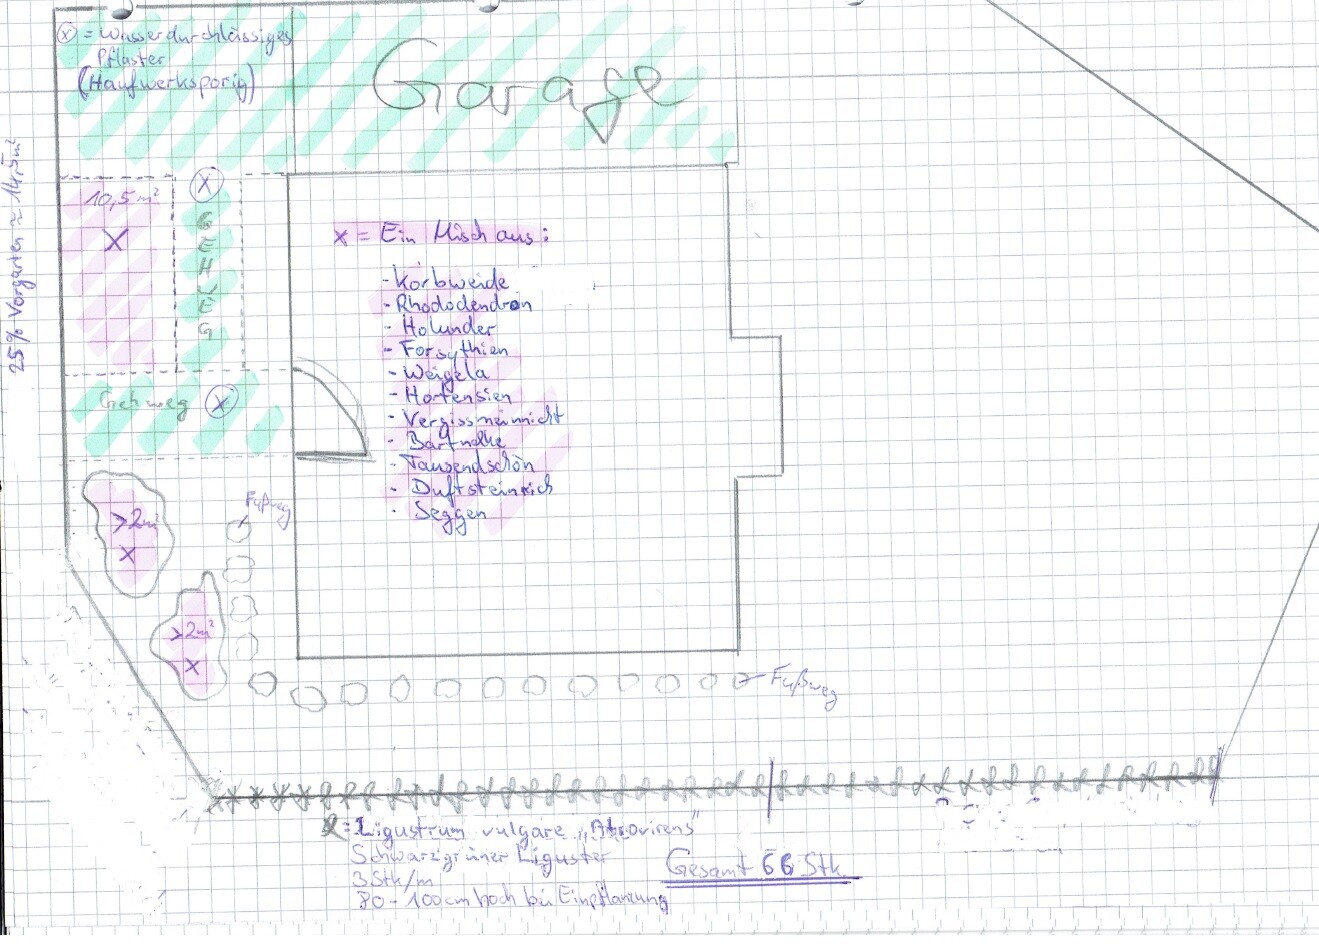 ⓧ = Wasserdurchlässiges
Pflaster
(Haufwerksporig)
Garage
25% Vorgarten ≈ 14,5m²
10,5m²
X
ⓧ
GEHWEG
Gehweg ⓧ
x = Ein Misch aus:
- Korbweide
- Rhododendron
- Holunder
- Forsythien
- Weigela
- Hortensien
- Vergissmeinnicht
- Bartnelke
- Tausendschön
- Duftsteinrich
- Seggen
>2m²
X
Fußweg
>2m²
X
Fußweg
= Ligustrum vulgare „Atrovirens"
Schwarzgrüner Liguster
3 Stk/m
80-100cm hoch bei Einpflanzung
Gesamt 66 Stk